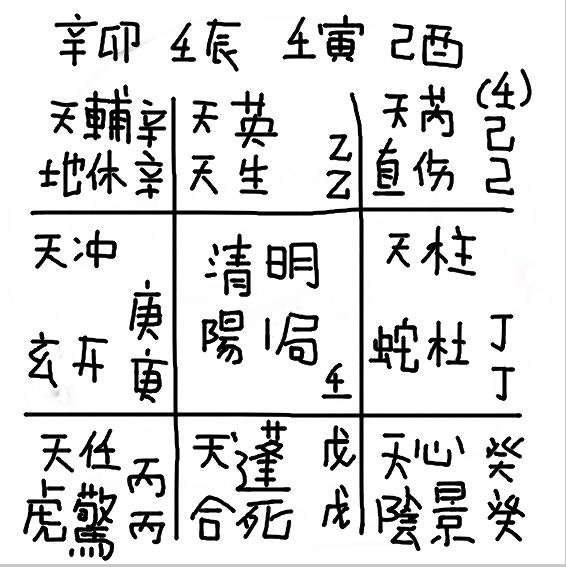 辛卯 壬辰 壬寅 己酉
天輔辛
地休辛
天英
乙
天生 乙
(壬)
天芮 己
直伤 己
天冲
庚
玄开 庚
清明
陽1局
壬
天柱
丁
蛇杜
丁
天任 丙
虎驚 丙
天蓬 戊
合死 戊
天心 癸
陰景 癸